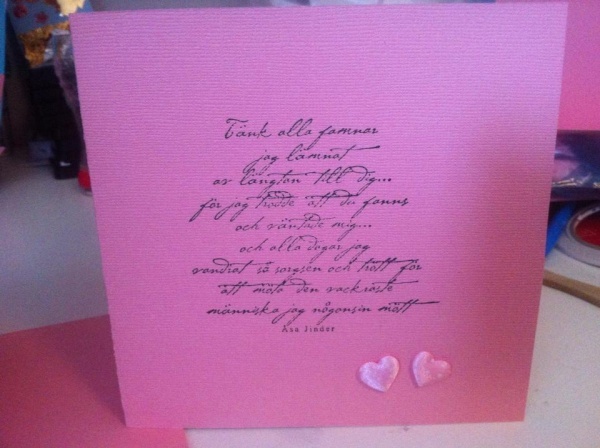 Tänk alla famnar
jag lämnat
av längtan till dig...
för jag trodde att du fanns
och väntade mig...
och alla dagar jag
vandrat så sorgsen och trött för
att möta den vackraste
människa jag någonsin mött
Åsa Jinder